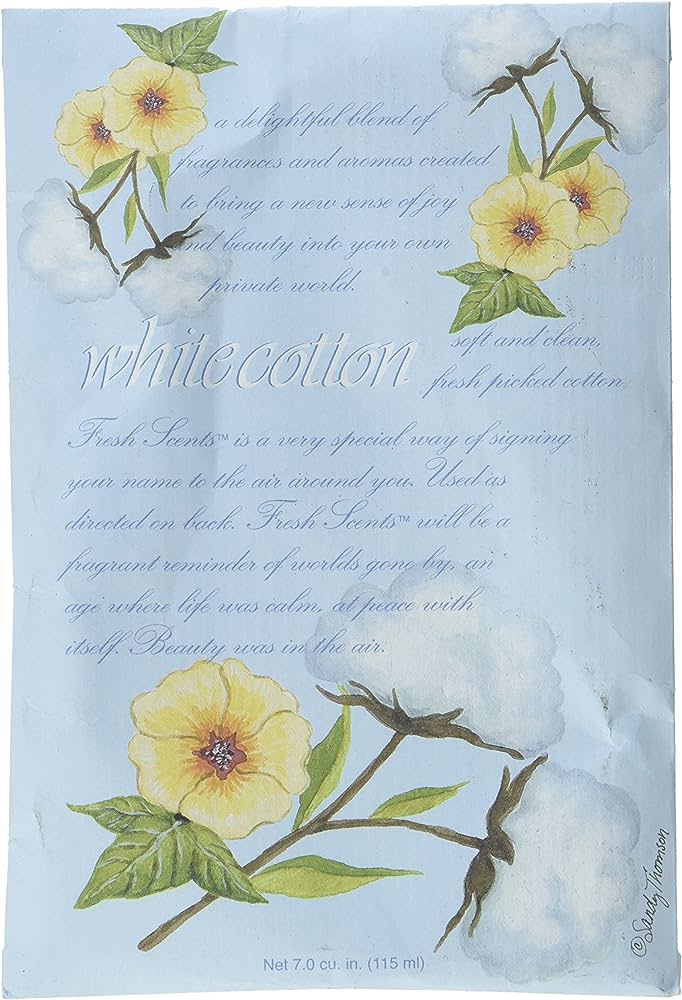 a delightful blend of
fragrances and aromas created
to bring a new sense of joy
and beauty into your own
private world.
whitecotton
soft and clean,
fresh picked cotton.
Fresh Scents™ is a very special way of signing
your name to the air around you. Used as
directed on back. Fresh Scents™ will be a
fragrant reminder of worlds gone by, an
age where life was calm, at peace with
itself. Beauty was in the air.
© Sandy Thomson
Net 7.0 cu. in. (115 ml)